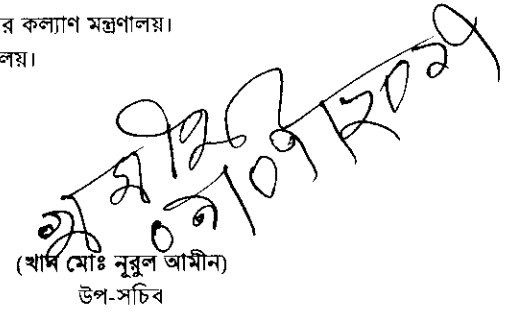 র কল্যাণ মন্ত্রণালয়।
লয়।
(খান মোঃ নূরুল আমীন)
উপ-সচিব